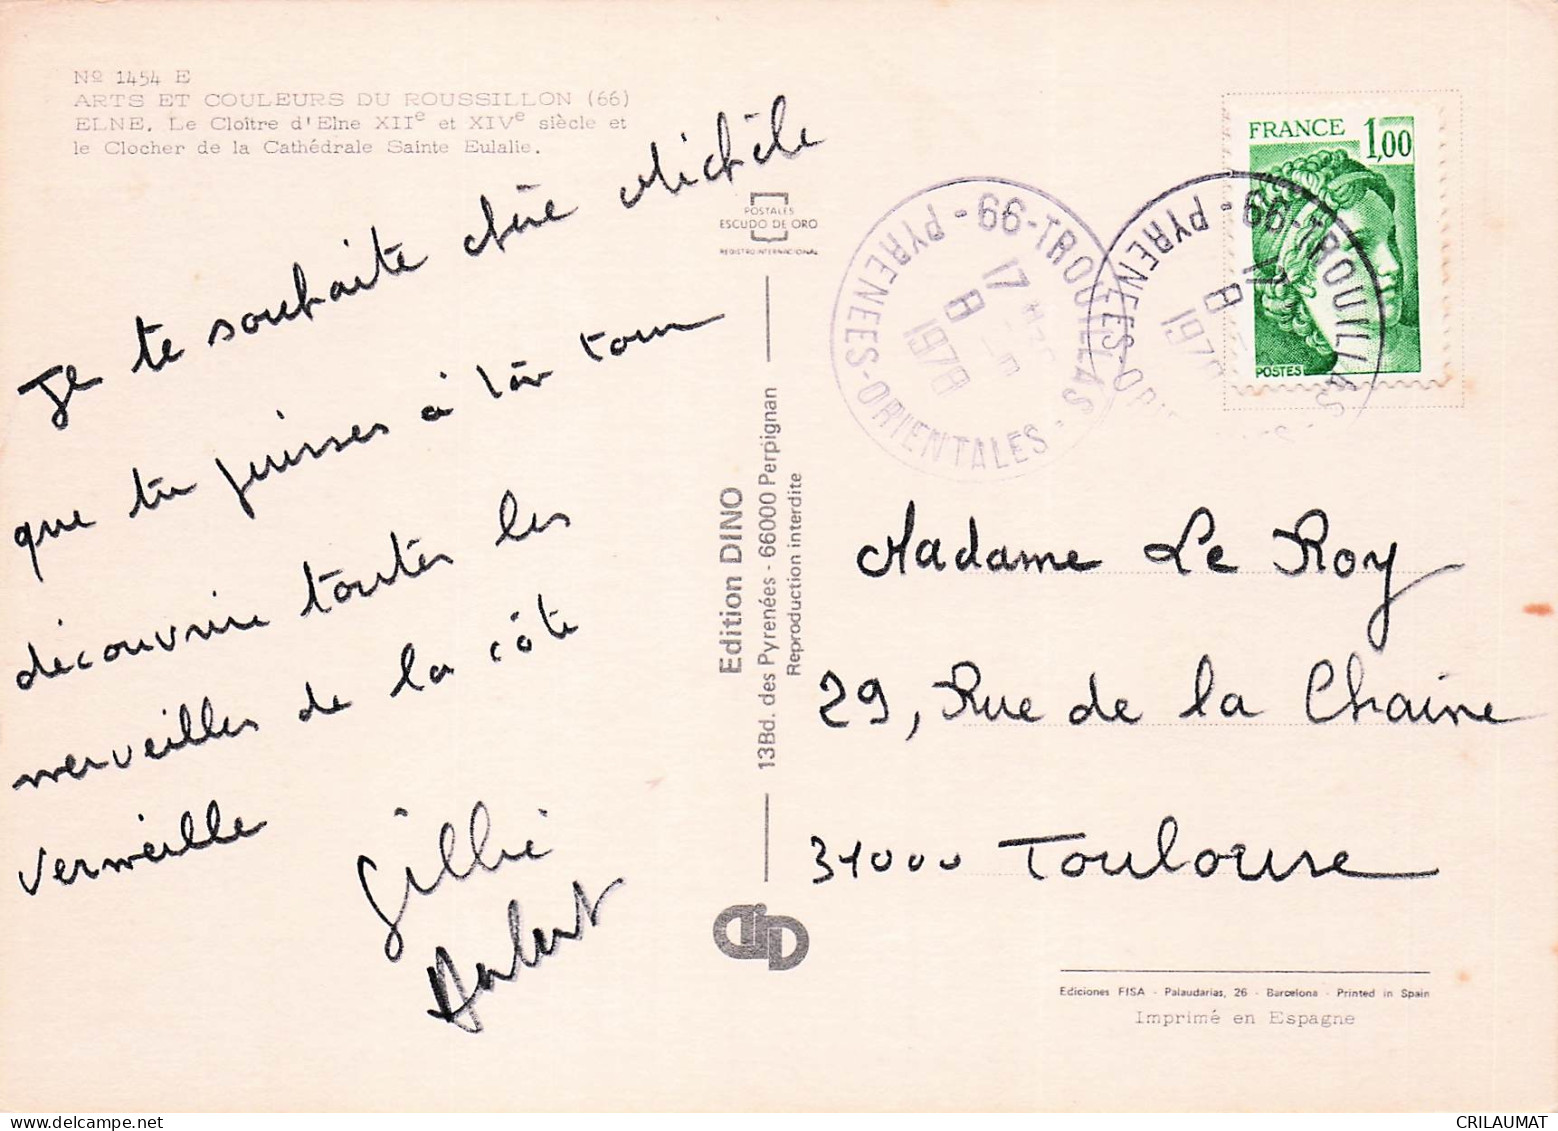 Nº 1454 E
ARTS ET COULEURS DU ROUSSILLON (66)
ELNE. Le Cloître d'Elne XIIe et XIVe siècle et
le Clocher de la Cathédrale Sainte Eulalie.
Je te souhaite chère Michèle
que tu puisses à ton tour
découvrir toutes les
merveilles de la côte
vermeille
Gillie
POSTALES
ESCUDO DE ORO
REGISTRO INTERNACIONAL
Edition DINO
13Bd. des Pyrenées - 66000 Perpignan
Reproduction interdite
66-TROUILLAS
PYRENEES-ORIENTALES
17
8
1978
66-TROUILLAS
PYRENEES-ORI
17
8
1978
FRANCE 1,00
POSTES
Madame Le Roy
29, Rue de la Chaine
31000 Toulouse
Ediciones FISA - Palaudarias, 26 - Barcelona - Printed in Spain
Imprimé en Espagne
CRILAUMAT